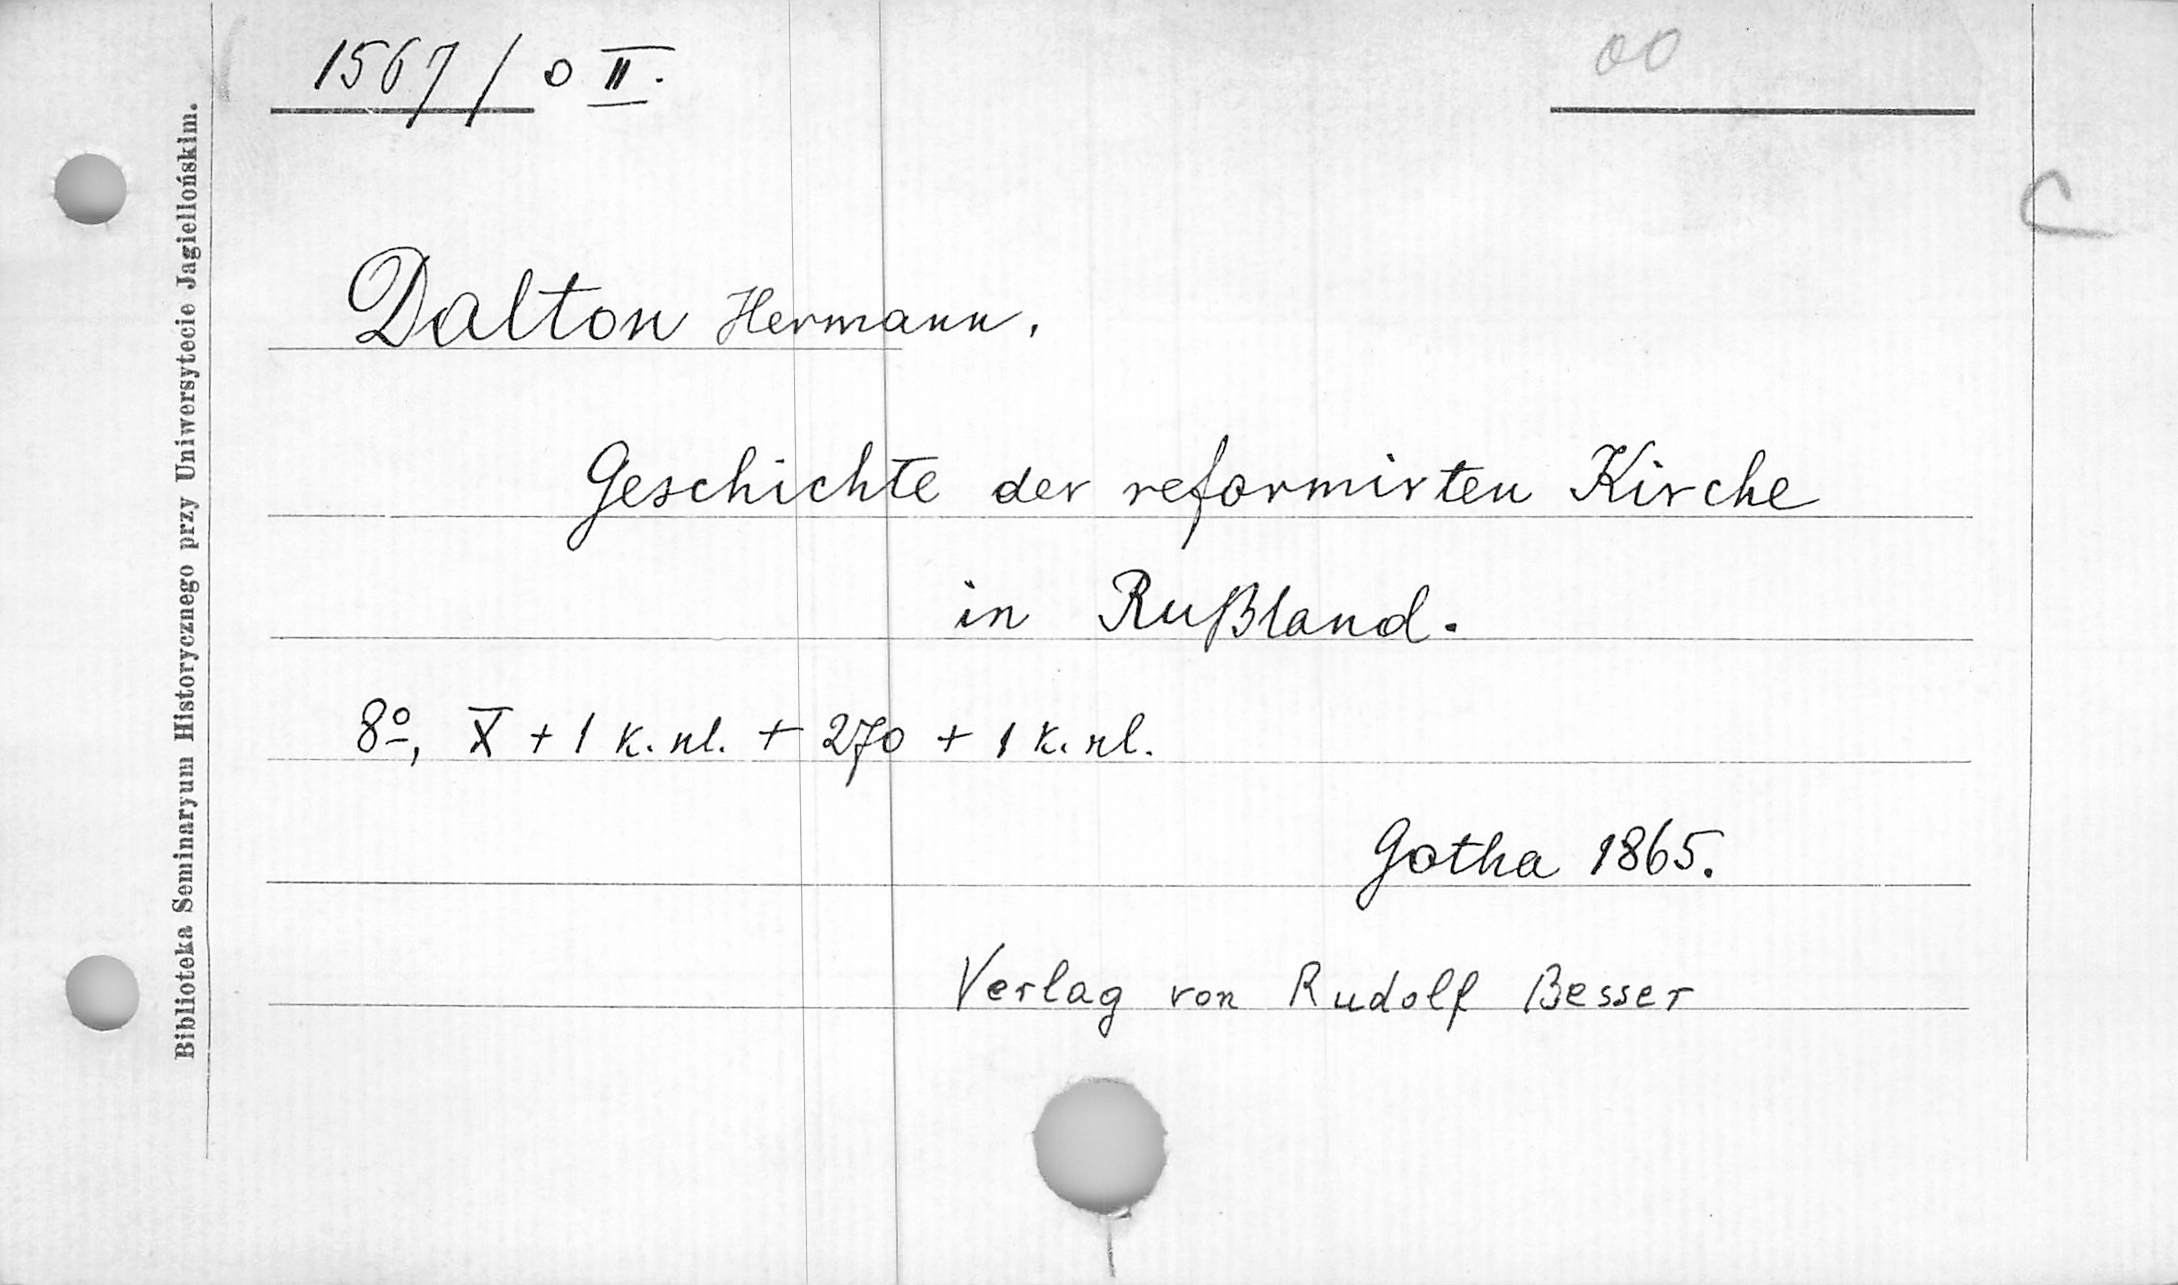 1567/o II.
00
C
Dalton Hermann.
Geschichte der reformirten Kirche
in Rußland.
8º, X + 1 k. nl. + 270 + 1 k. nl.
Gotha 1865.
Verlag von Rudolf Besser
Biblioteka Seminaryum Historycznego przy Uniwersytecie Jagiellońskim.